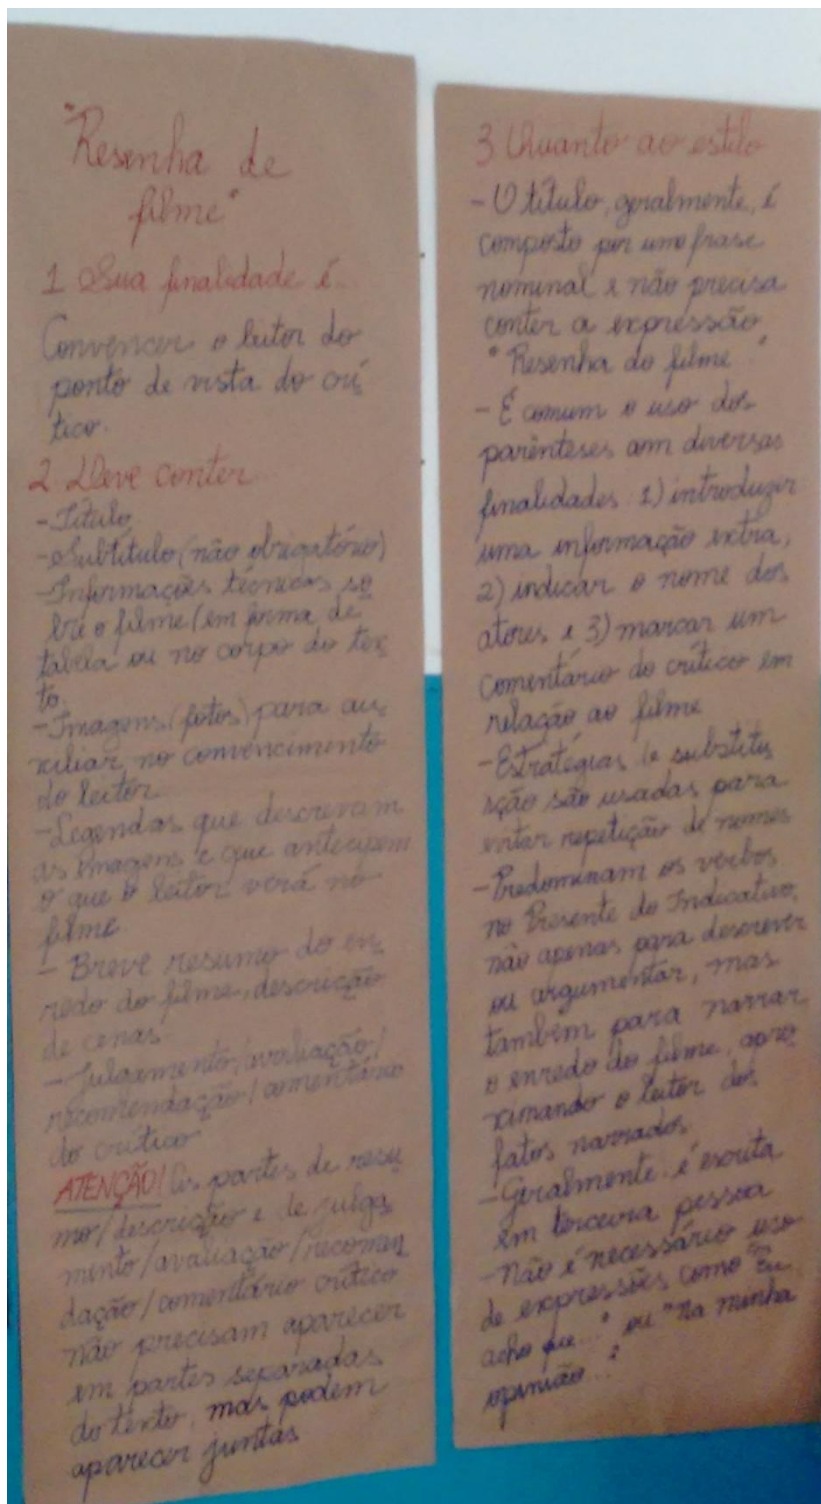 "Resenha de
filme"
1 Sua finalidade é
Convencer o leitor do
ponto de vista do crí
tico.
2 Deve conter
- Título
- Subtítulo (não obrigatório)
- Informações técnicas so
bre o filme (em forma de
tabela ou no corpo do tex
to.
- Imagens (fotos) para au
xiliar no convencimento
do leitor
- Legendas que descrevam
as imagens e que antecipem
o que o leitor verá no
filme
- Breve resumo do en
redo do filme, descrição
de cenas
- Julgamento/avaliação/
recomendação/comentário
do crítico
ATENÇÃO! As partes de resu
mo/descrição e de julga
mento/avaliação/recomen
dação/comentário crítico
não precisam aparecer
em partes separadas
do texto, mas podem
aparecer juntas
3 Quanto ao estilo
- O título, geralmente, é
composto por uma frase
nominal e não precisa
conter a expressão
"Resenha do filme"
- É comum o uso dos
parênteses com diversas
finalidades 1) introduzir
uma informação extra,
2) indicar o nome dos
atores e 3) marcar um
comentário do crítico em
relação ao filme
- Estratégias de substitu
ição são usadas para
evitar repetição de nomes
- Predominam os verbos
no Presente do Indicativo,
não apenas para descrever
ou argumentar, mas
também para narrar
o enredo do filme, apro
ximando o leitor dos
fatos narrados.
- Geralmente é escrita
em terceira pessoa
- Não é necessário uso
de expressões como "Eu
acho que..." ou "Na minha
opinião..."